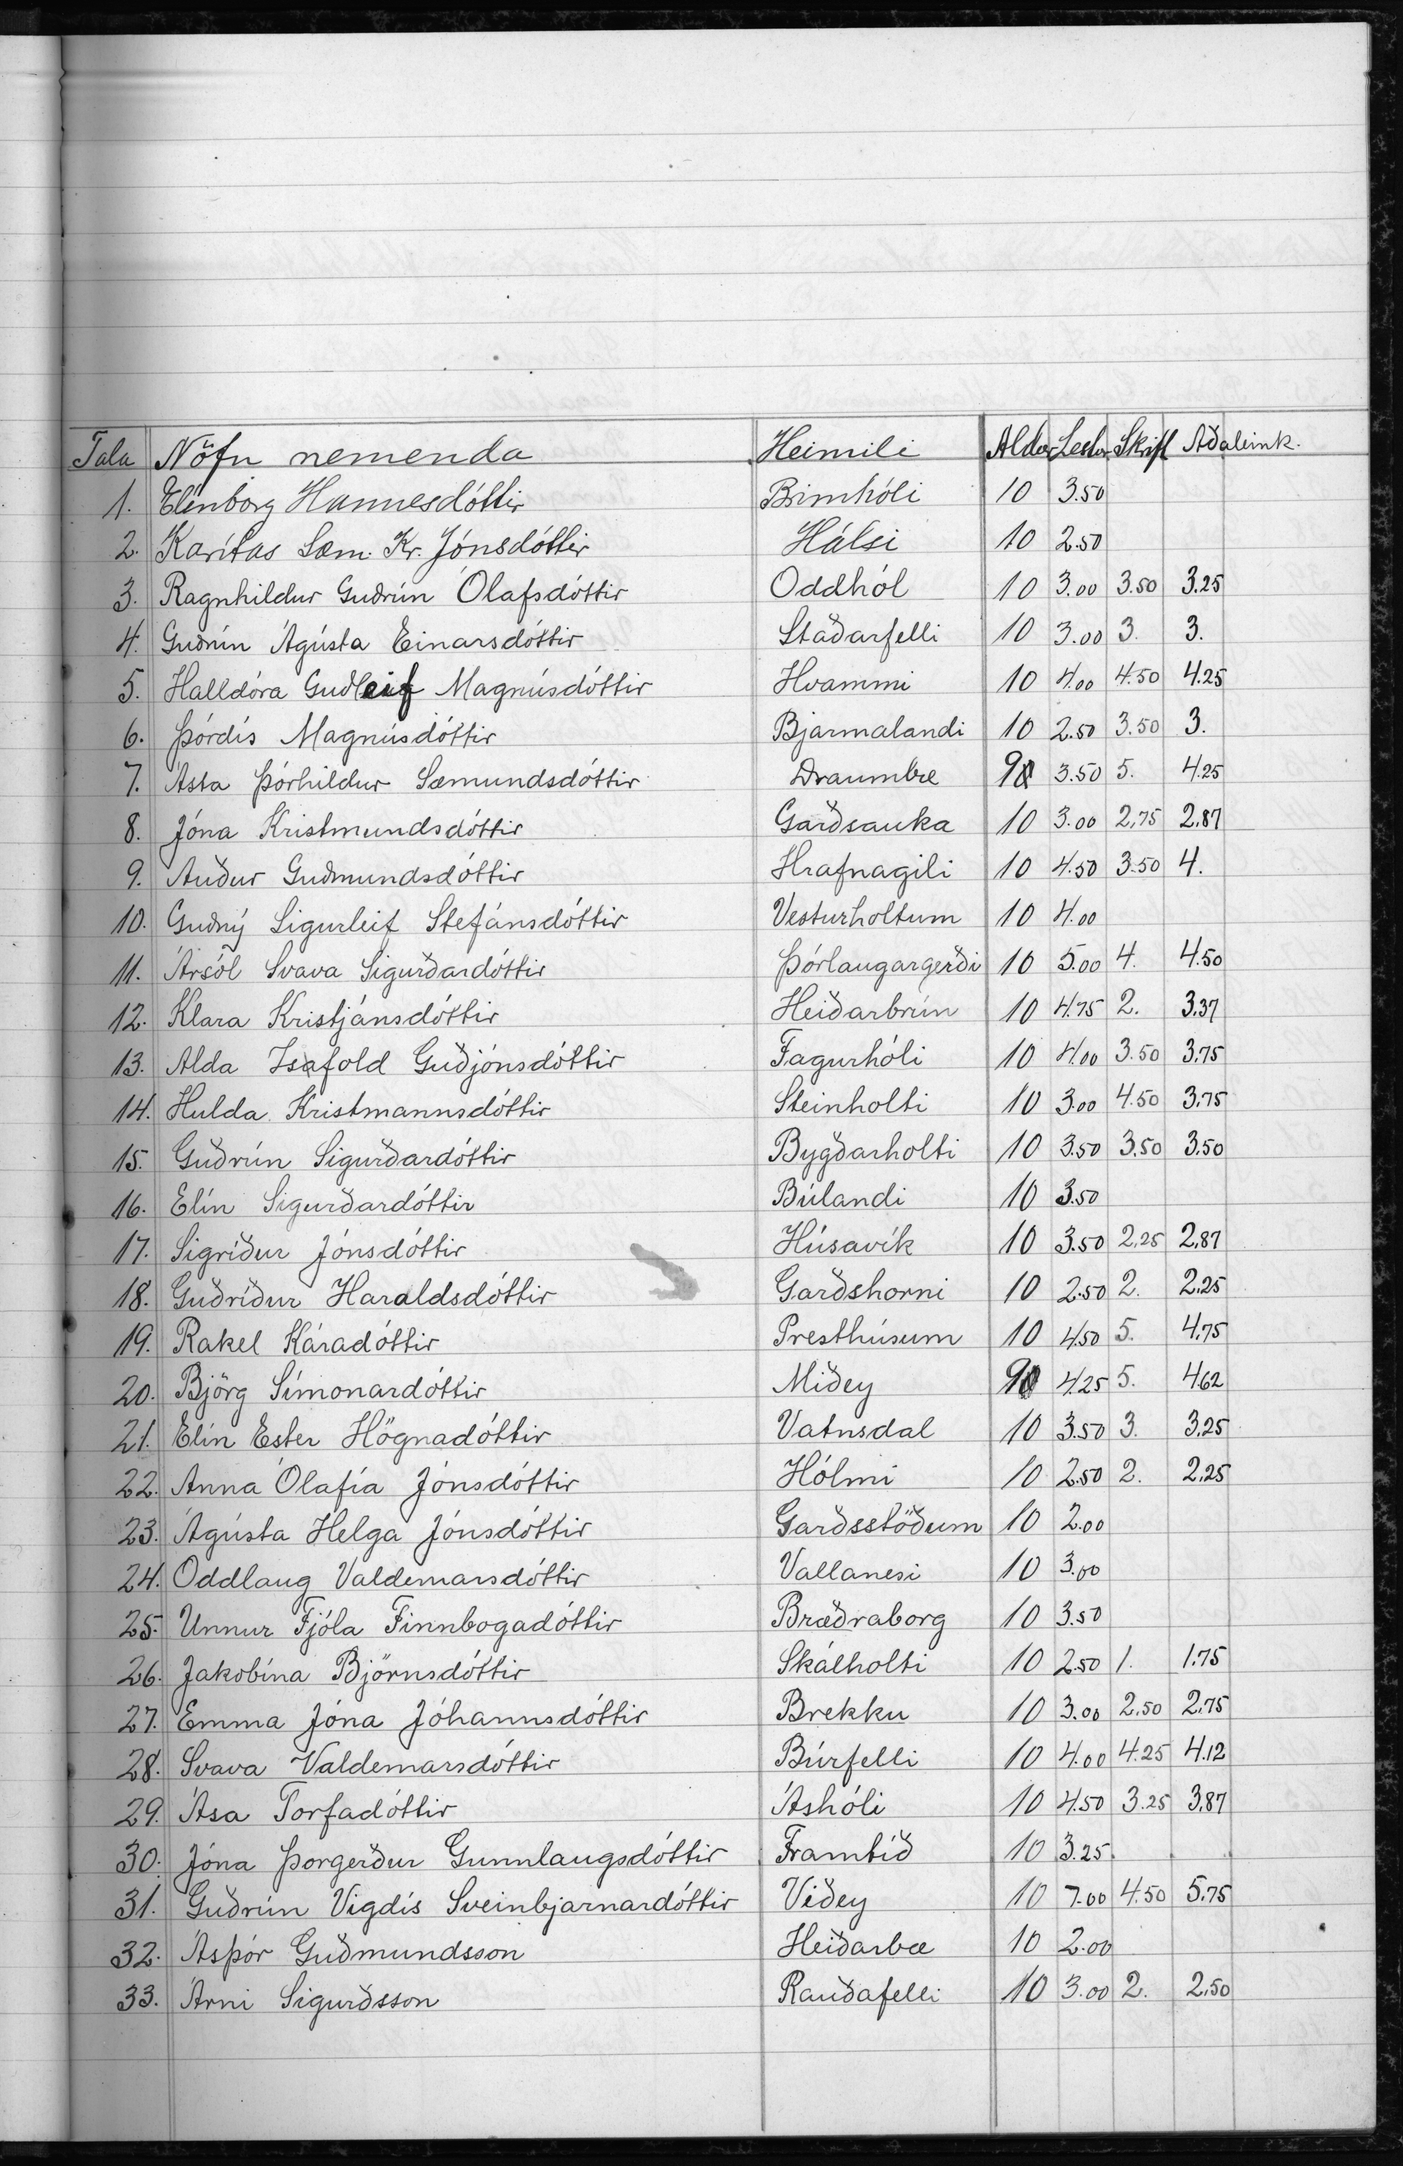 Tala Nöfn nemenda Heimili Aldur Lestur Skrift Aðaleink.
1. Elínborg Hannesdóttir Brimhóli 10 3.50
2. Karítas Sæm. Kr. Jónsdóttir Hálsi 10 2.50
3. Ragnhildur Guðrún Ólafsdóttir Oddhól 10 3.00 3.50 3.25
4. Guðrún Ágústa Einarsdóttir Staðarfelli 10 3.00 3. 3.
5. Halldóra Guðleif Magnúsdóttir Hvammi 10 4.00 4.50 4.25
6. Þórdís Magnúsdóttir Bjarmalandi 10 2.50 3.50 3.
7. Ásta Þórhildur Sæmundsdóttir Draumbæ 9 3.50 5. 4.25
8. Jóna Kristmundsdóttir Garðsauka 10 3.00 2,75 2,87
9. Auður Guðmundsdóttir Hrafnagili 10 4.50 3.50 4.
10. Guðný Sigurleif Stefánsdóttir Vesturholtum 10 4.00
11. Ársól Svava Sigurðardóttir Þórlaugargerði 10 5.00 4. 4.50
12. Klara Kristjánsdóttir Heiðarbrún 10 4.75 2. 3.37
13. Alda Isafold Guðjónsdóttir Fagurhóli 10 4.00 3.50 3.75
14. Hulda Kristmannsdóttir Steinholti 10 3.00 4.50 3.75
15. Guðrún Sigurðardóttir Bygðarholti 10 3.50 3.50 3.50
16. Elín Sigurðardóttir Búlandi 10 3.50
17. Sigríður Jónsdóttir Húsavík 10 3.50 2,25 2,87
18. Guðríður Haraldsdóttir Garðshorni 10 2.50 2. 2.25
19. Rakel Káradóttir Presthúsum 10 4.50 5. 4.75
20. Björg Símonardóttir Miðey 9 4.25 5. 4.62
21. Elín Ester Högnadóttir Vatnsdal 10 3.50 3. 3.25
22. Anna Ólafía Jónsdóttir Hólmi 10 2.50 2. 2.25
23. Ágústa Helga Jónsdóttir Garðsstöðum 10 2.00
24. Oddlaug Valdemarsdóttir Vallanesi 10 3.00
25. Unnur Fjóla Finnbogadóttir Bræðraborg 10 3.50
26. Jakobína Björnsdóttir Skálholti 10 2.50 1. 1.75
27. Emma Jóna Jóhannsdóttir Brekku 10 3.00 2.50 2.75
28. Svava Valdemarsdóttir Búrfelli 10 4.00 4.25 4.12
29. Ása Torfadóttir Áshóli 10 4.50 3.25 3.87
30. Jóna Þorgerður Gunnlaugsdóttir Framtíð 10 3.25
31. Guðrún Vigdís Sveinbjarnardóttir Viðey 10 7.00 4.50 5.75
32. Ásþór Guðmundsson Heiðarbæ 10 2.00
33. Árni Sigurðsson Rauðafelli 10 3.00 2. 2.50